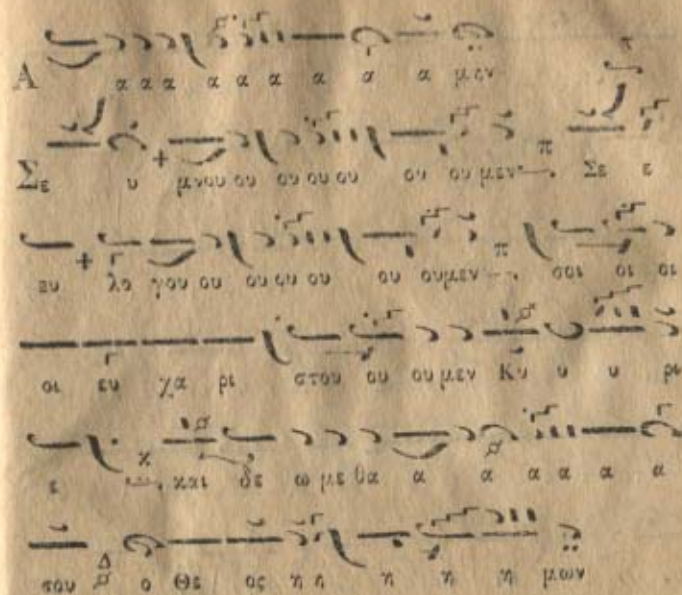 Α α α α α α α α α α μεν
Σε υ μνου ου ου ου ου ου ου μεν π Σε ε
ευ λο γου ου ου ου ου ου ουμεν π σοι οι οι
οι ευ χα ρι στου ου ου μεν Κυ υ υ ρι
ε χ και δε ω με θα α α α α α α
σου Δ ο Θε ος η η η η η μων